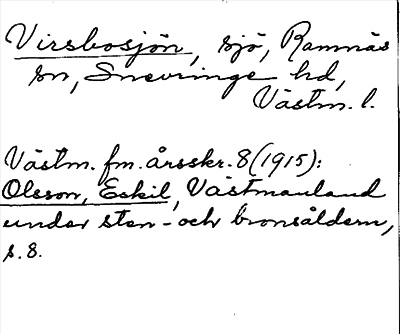 Virsbosjön, sjö, Ramnäs
sn, Snevringe hd,
Västm. l.
Västm. fm. årsskr. 8 (1915):
Olsson, Eskil, Västmanland
under sten- och bronsåldern,
s. 8.